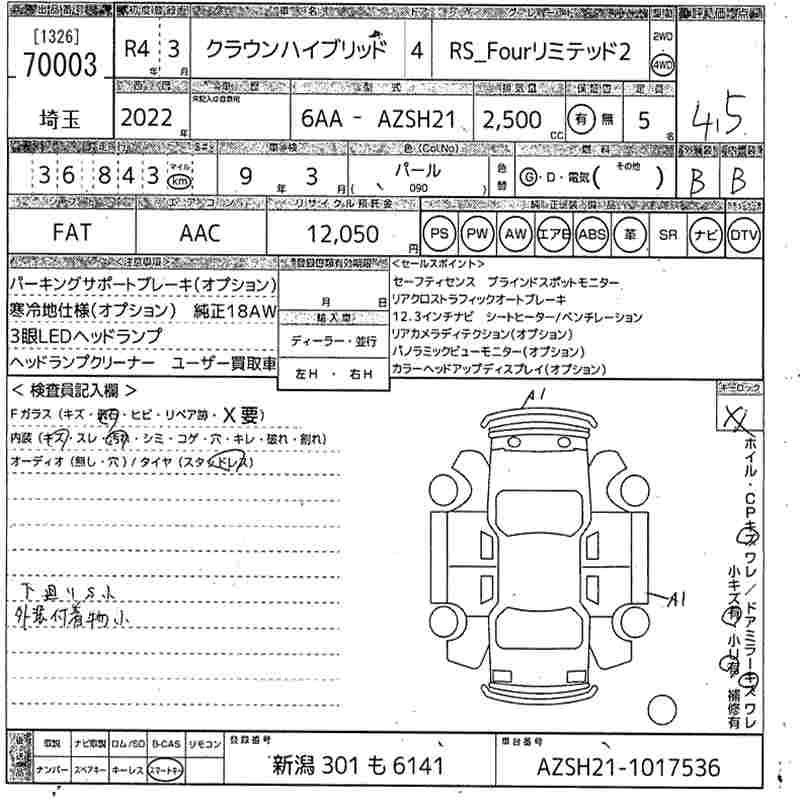 [1326]
70003
埼玉
初度登録
R4 3
年 月
車名
クラウンハイブリッド
ドア
4
グレード
RS_Fourリミテッド2
2WD
4WD
評価点
4.5
2022
年
車歴
型式
6AA - AZSH21
排気量
2,500
cc
保証書
有 無
定員
5
名
走行
36843
マイル
km
車検
9 年 3 月
色(Col.No)
パール
( 090 )
色替
燃料
G・D・電気( その他 )
外装
B
内装
B
シフト
FAT
エアコン
AAC
リサイクル預託金
12,050
円
純正装備品
PS PW AW エアB ABS 革 SR ナビ DTV
<注意事項>
パーキングサポートブレーキ(オプション)
寒冷地仕様(オプション) 純正18AW
3眼LEDヘッドランプ
ヘッドランプクリーナー ユーザー買取車
登録書類有効期限
月 日
輸入車
ディーラー・並行
左H ・ 右H
<セールスポイント>
セーフティセンス ブラインドスポットモニター
リアクロストラフィックオートブレーキ
12.3インチナビ シートヒーター/ベンチレーション
リアカメラディテクション(オプション)
パノラミックビューモニター(オプション)
カラーヘッドアップディスプレイ(オプション)
<検査員記入欄>
Fガラス(キズ・飛石・ヒビ・リペア跡・X要)
内装(キズ・スレ・汚れ・シミ・コゲ・穴・キレ・破れ・割れ)
オーディオ(無し・穴)/タイヤ(スタッドレス)
下廻りS小
外装付着物小
A1
A1
キーロック
ホイル・CPキズ ワレ/ドアミラーキズ ワレ
小キズ有 小U有 補修有
後日送付
取説 ナビ取説 ロム/SD B-CAS リモコン
ナンバー スペアキー キーレス スマートキー
登録番号
新潟 301 も 6141
車台番号
AZSH21-1017536